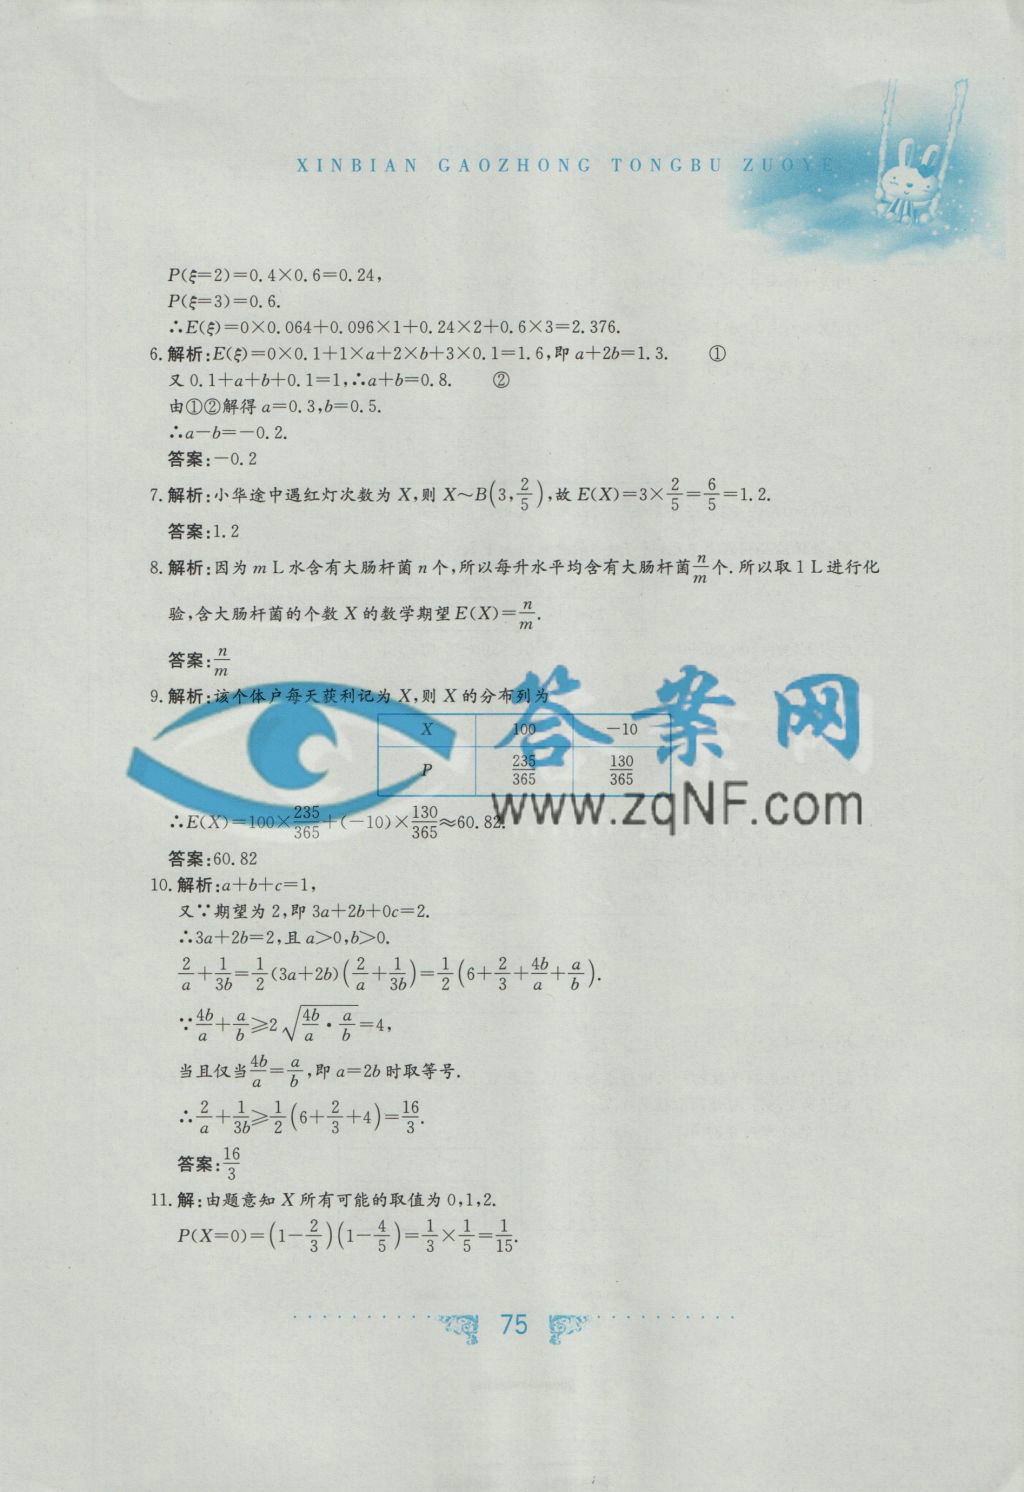 XINBIAN GAOZHONG TONGBU ZUOYE
P(ξ=2)=0.4×0.6=0.24,
P(ξ=3)=0.6.
∴E(ξ)=0×0.064+0.096×1+0.24×2+0.6×3=2.376.
6.解析:E(ξ)=0×0.1+1×a+2×b+3×0.1=1.6,即a+2b=1.3. ①
又0.1+a+b+0.1=1,∴a+b=0.8. ②
由①②解得a=0.3,b=0.5.
∴a-b=-0.2.
答案:-0.2
7.解析:小华途中遇红灯次数为X,则X~B(3,2/5),故E(X)=3×2/5=6/5=1.2.
答案:1.2
8.解析:因为m L水含有大肠杆菌n个,所以每升水平均含有大肠杆菌n/m个.所以取1 L进行化
验,含大肠杆菌的个数X的数学期望E(X)=n/m.
答案:n/m
9.解析:该个体户每天获利记为X,则X的分布列为
X 100 -10
P 235/365 130/365
答案网
www.zqNF.com
∴E(X)=100×235/365+(-10)×130/365≈60.82.
答案:60.82
10.解析:a+b+c=1,
又∵期望为2,即3a+2b+0c=2.
∴3a+2b=2,且a>0,b>0.
2/a+1/3b=1/2(3a+2b)(2/a+1/3b)=1/2(6+2/3+4b/a+a/b).
∵4b/a+a/b≥2√(4b/a·a/b)=4,
当且仅当4b/a=a/b,即a=2b时取等号.
∴2/a+1/3b≥1/2(6+2/3+4)=16/3.
答案:16/3
11.解:由题意知X所有可能的取值为0,1,2.
P(X=0)=(1-2/3)(1-4/5)=1/3×1/5=1/15.
75